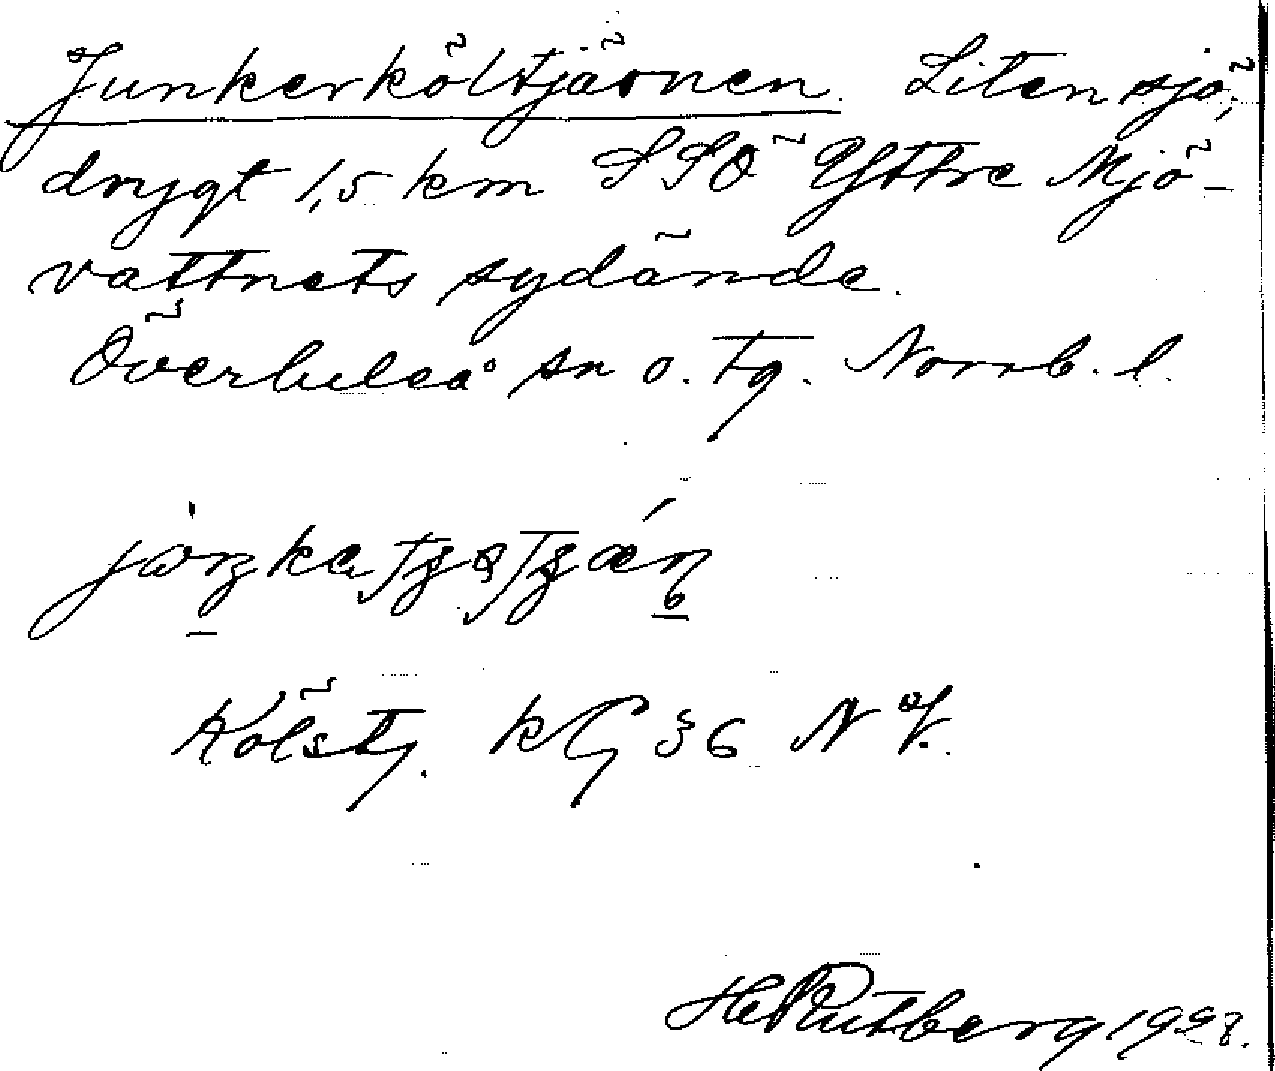 Junkerköltjärnen. Liten sjö,
drygt 1,5 km SSÖ Yttre Mjö-
vattnets sydände.
Överluleå sn o. tg. Norrb. l.
Kölstj. kG §6 NV.
H Rutberg 1928.